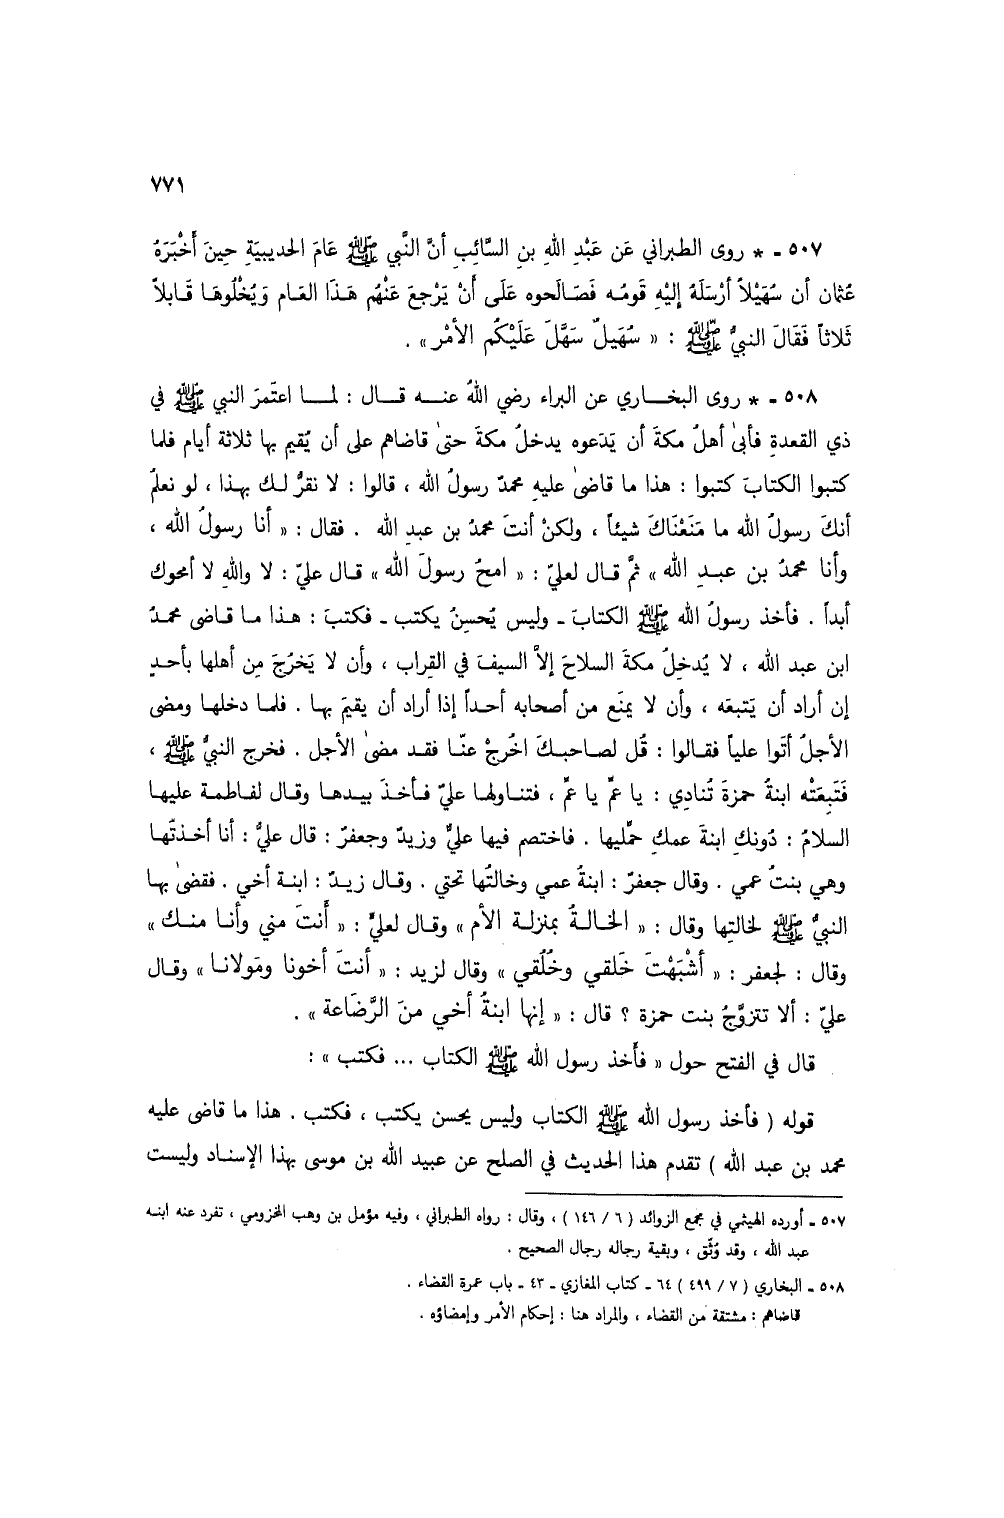 ٧٧١
٥٠٧ ـ * روى الطبراني عَن عَبْدِ اللهِ بنِ السَّائِبِ أنَّ النَّبي ﷺ عَامَ الحديبيَةِ حِينَ أَخْبَرَهُ
عُثمان أن سُهَيْلاً أرْسَلَهُ إلَيْهِ قَومُه فَصَالَحوه عَلَى أَنْ يَرْجعَ عَنْهُم هَذَا العَام وَيُخْلُوهَا قَابلاً
ثَلاثاً فَقَالَ النبيُّ ﷺ : « سُهَيلٌ سَهَّلَ عَلَيْكُم الأمْر » .
٥٠٨ ـ * روى البخاري عن البراء رضي اللهُ عنه قال : لما اعتَمرَ النبي ﷺ في
ذي القعدةِ فأبىٰ أهلُ مكةَ أن يَدَعوه يدخلُ مكةَ حتىٰ قاضاهم على أن يُقيم بها ثلاثةَ أيام فلما
كتبوا الكتابَ كتبوا : هذا ما قاضىٰ عليهِ محمدٌ رسولُ الله ، قالوا : لا نقرُّ لك بهذا ، لو نعلمُ
أنكَ رسولُ الله ما مَنَعْنَاكَ شيئاً ، ولكنْ أنتَ محمدُ بن عبدِ الله . فقال : « أنا رسولُ الله ،
وأنا محمدُ بن عبدِ الله » ثمَّ قال لعليّ : « امحُ رسولَ الله » قال عليّ : لا واللهِ لا أمحوك
أبداً . فأخذ رسولُ الله ﷺ الكتابَ ـ وليس يُحسِنُ يكتب ـ فكتبَ : هذا ما قاضى محمدُ
ابن عبد الله ، لا يُدخِلُ مكةَ السلاحَ إلاَّ السيفَ في القِراب ، وأن لا يَخرُجَ مِن أهلها بأحدٍ
إن أراد أن يَتبعَه ، وأن لا يمنَع من أصحابه أحداً إذا أراد أن يقيمَ بها . فلما دخلها ومضى
الأجلُ أتَوا علياً فقالوا : قُل لصاحبكَ اخُرجْ عنّا فقد مضىٰ الأجل . فخرج النبيُّ ﷺ ،
فَتَبِعَتْه ابنةُ حمزةَ تُنادِي : يا عمِّ يا عمِّ ، فتناولها عليّ فأخذَ بيدها وقال لفاطمة عليها
السلامُ : دُونكِ ابنةَ عمكِ حمِّليها . فاختصم فيها عليٌّ وزيدٌ وجعفرٌ : قال عليُّ : أنا أخذتُها
وهي بنتُ عمي . وقال جعفرٌ : ابنةُ عمي وخالتُها تحتي . وقال زيدٌ : ابنة أخي . فقضىٰ بها
النبيُّ ﷺ لخالتِها وقال : « الخالةُ بمنزلة الأم » وقال لعليٍّ : « أَنتَ مني وأنا منك »
وقال : لجعفر : « أشْبَهْتَ خَلقي وخُلُقي » وقال لزيد : « أنتَ أخونا ومَولانا » وقال
عليّ : ألا تتزوَّجُ بنت حمزة ؟ قال : « إنها ابنةُ أخي منَ الرَّضَاعة » .
قال في الفتح حول « فأخذ رسول الله ﷺ الكتاب ... فكتب » :
قوله ( فأخذ رسول الله ﷺ الكتاب وليس يحسن يكتب ، فكتب . هذا ما قاضى عليه
محمد بن عبد الله ) تقدم هذا الحديث في الصلح عن عبيد الله بن موسى بهذا الإسناد وليست
٥٠٧ ـ أورده الهيثمي في مجمع الزوائد ( ٦ / ١٤٦ ) ، وقال : رواه الطبراني ، وفيه مؤمل بن وهب المخزومي ، تفرد عنه ابنه
عبد الله ، وقد وُثّق ، وبقية رجاله رجال الصحيح .
٥٠٨ ـ البخاري ( ٧ / ٤٩٩ ) ٦٤ ـ كتاب المغازي ـ ٤٣ ـ باب عمرة القضاء .
قاضاهم : مشتقة من القضاء ، والمراد هنا : إحكام الأمر وإمضاؤه .